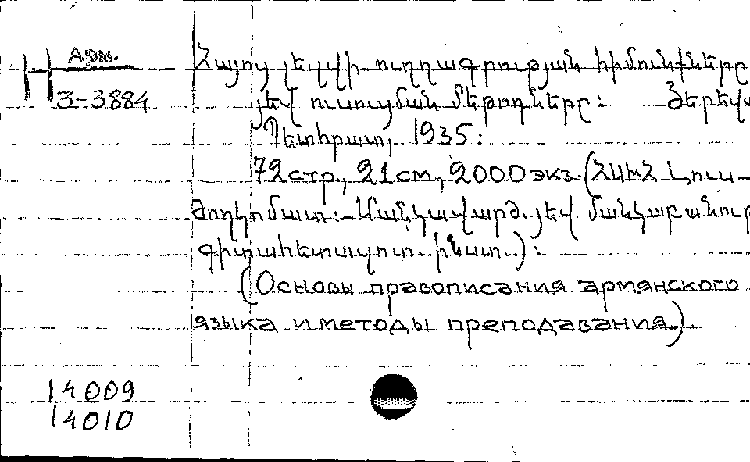 Арм.
З-3884
Հայոց լեզվի ուղղագրության հիմունքները
յեվ ուսուցման մեթոդները: Յերեվ
Պետհրատ, 1935:
72 стр., 21 см, 2000 экз (ՀՍԽՀ Լուս-
ժողկոմատ: Մանկավարժ. յեվ մանկաբանու
գիտահետազոտ. ինստ.):
(Основы правописания армянского
языка и методы преподавания).
14009
14010